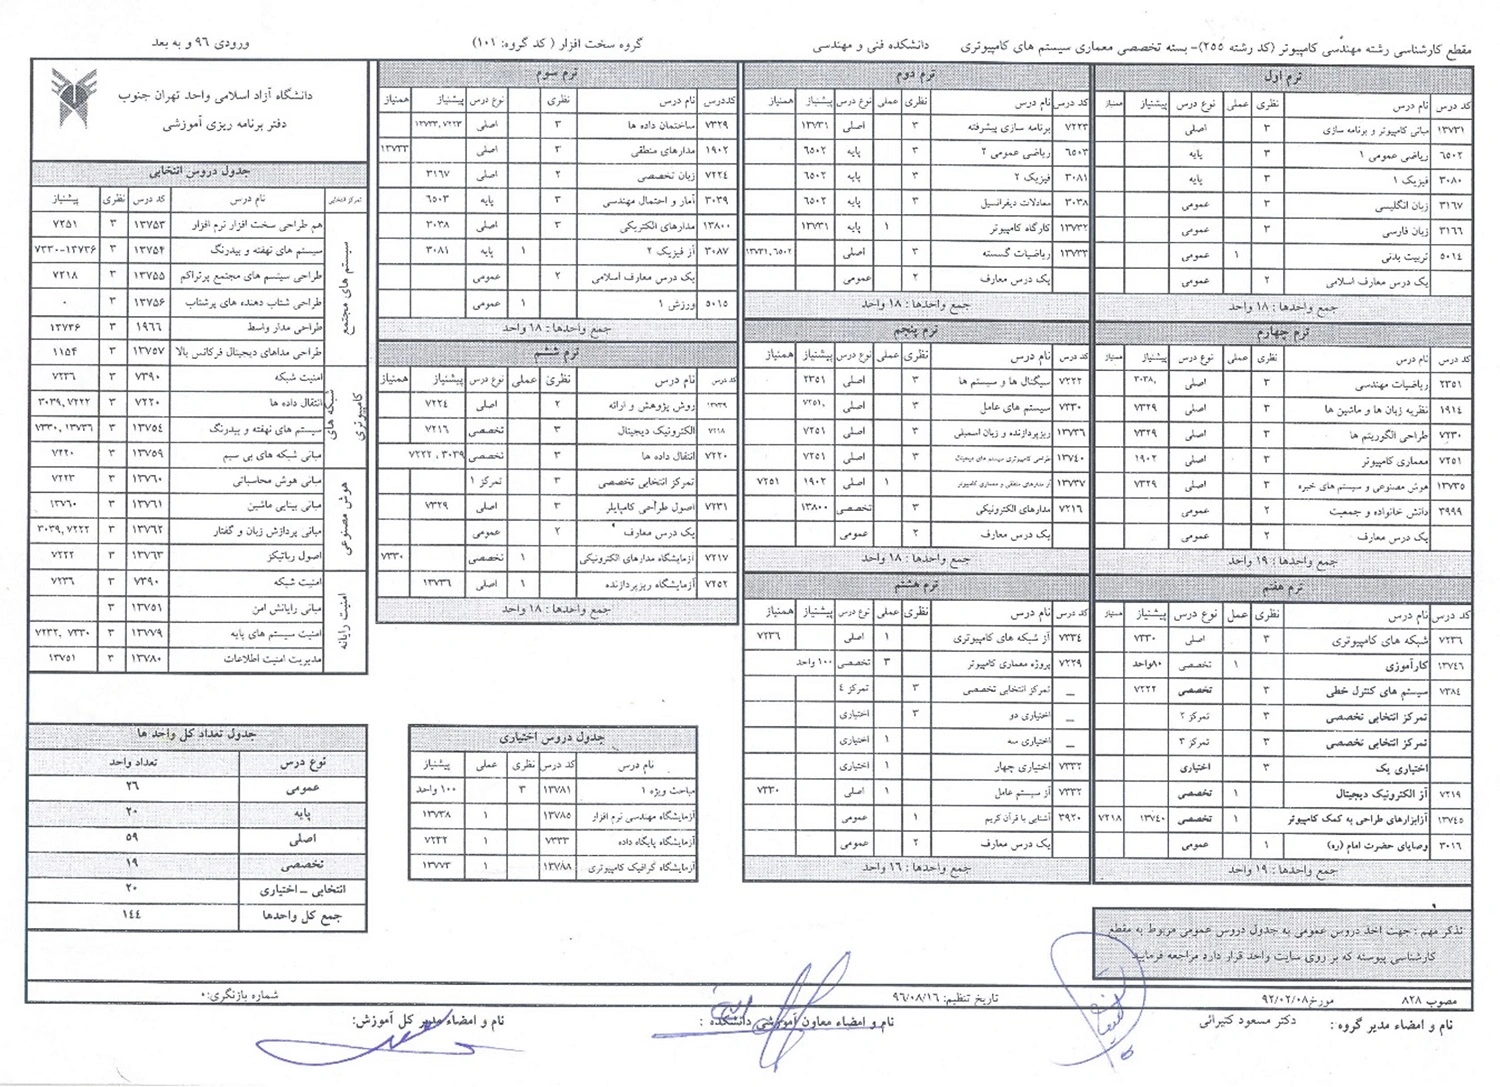 مقطع کارشناسی رشته مهندسی کامپیوتر (کد رشته ۲۵۵)- بسته تخصصی معماری سیستم های کامپیوتری دانشکده فنی و مهندسی گروه سخت افزار ( کد گروه: ۱۰۱) ورودی ۹۶ و به بعد
ترم اول
کد درس نام درس نظری عملی نوع درس پیشنیاز همنیاز
۱۳۷۳۱ مبانی کامپیوتر و برنامه سازی ۳ اصلی
۶۵۰۲ ریاضی عمومی ۱ ۳ پایه
۳۰۸۰ فیزیک ۱ ۳ پایه
۳۱۶۷ زبان انگلیسی ۳ عمومی
۳۱۶۶ زبان فارسی ۳ عمومی
۵۰۱۴ تربیت بدنی ۱ عمومی
یک درس معارف اسلامی ۲ عمومی
جمع واحدها : ۱۸ واحد
ترم دوم
کد درس نام درس نظری عملی نوع درس پیشنیاز همنیاز
۷۲۲۳ برنامه سازی پیشرفته ۳ اصلی ۱۳۷۳۱
۶۵۰۳ ریاضی عمومی ۲ ۳ پایه ۶۵۰۲
۳۰۸۱ فیزیک ۲ ۳ پایه ۶۵۰۲
۳۰۳۸ معادلات دیفرانسیل ۳ پایه ۶۵۰۲
۱۳۷۳۲ کارگاه کامپیوتر ۱ پایه ۱۳۷۳۱
۱۳۷۳۳ ریاضیات گسسته ۳ اصلی ۱۳۷۳۱,۶۵۰۲
یک درس معارف ۲ عمومی
جمع واحدها : ۱۸ واحد
ترم سوم
کددرس نام درس نظری نوع درس پیشنیاز همنیاز
۷۳۲۹ ساختمان داده ها ۳ اصلی ۱۳۷۳۳,۷۲۲۳
۱۹۰۲ مدارهای منطقی ۳ اصلی ۱۳۷۳۳
۷۲۲٤ زبان تخصصی ۲ اصلی ۳۱۶۷
۳۰۳۹ آمار و احتمال مهندسی ۳ پایه ۶۵۰۳
۱۳۸۰۰ مدارهای الکتریکی ۳ اصلی ۳۰۳۸
۳۰۸۷ آز فیزیک ۲ ۱ پایه ۳۰۸۱
یک درس معارف اسلامی ۲ عمومی
۵۰۱۵ ورزش ۱ ۱ عمومی
جمع واحدها : ۱۸ واحد
دانشگاه آزاد اسلامی واحد تهران جنوب
دفتر برنامه ریزی آموزشی
جدول دروس انتخابی
تمرکز انتخابی نام درس کد درس نظری پیشنیاز
سیستم های مجتمع
هم طراحی سخت افزار نرم افزار ۱۳۷۵۳ ۳ ۷۲۵۱
سیستم های نهفته و بیدرنگ ۱۳۷۵۴ ۳ ۷۳۳۰-۱۳۷۳۶
طراحی سیستم های مجتمع پرتراکم ۱۳۷۵۵ ۳ ۷۲۱۸
طراحی شتاب دهنده های پرشتاب ۱۳۷۵۶ ۳ ۰
طراحی مدار واسط ۱۹۶۶ ۳ ۱۳۷۳۶
طراحی مداهای دیجیتال فرکانس بالا ۱۳۷۵۷ ۳ ۱۱۵۴
شبکه های کامپیوتری
امنیت شبکه ۷۳۹۰ ۳ ۷۲۳۶
انتقال داده ها ۷۲۲۰ ۳ ۳۰۳۹,۷۲۲۲
سیستم های نهفته و بیدرنگ ۱۳۷۵٤ ۳ ۷۳۳۰,۱۳۷۳۶
مبانی شبکه های بی سیم ۱۳۷۵۹ ۳ ۷۲۲۰
هوش مصنوعی
مبانی هوش محاسباتی ۱۳۷۶۰ ۳ ۷۲۲۳
مبانی بینایی ماشین ۱۳۷۶۱ ۳ ۱۳۷۶۰
مبانی پردازش زبان و گفتار ۱۳۷۶۲ ۳ ۳۰۳۹,۷۲۲۲
اصول رباتیکز ۱۳۷۶۳ ۳ ۷۲۲۲
امنیت رایانه
امنیت شبکه ۷۳۹۰ ۳ ۷۲۳۶
مبانی رایانش امن ۱۳۷۵۱ ۳
امنیت سیستم های پایه ۱۳۷۷۹ ۳ ۷۲۳۲,۷۳۳۰
مدیریت امنیت اطلاعات ۱۳۷۸۰ ۳ ۱۳۷۵۱
ترم چهارم
کد درس نام درس نظری عملی نوع درس پیشنیاز همنیاز
۲۳۵۱ ریاضیات مهندسی ۳ اصلی ۳۰۳۸,
۱۹۱٤ نظریه زبان ها و ماشین ها ۳ اصلی ۷۳۲۹
۷۲۳۰ طراحی الگوریتم ها ۳ اصلی ۷۳۲۹
۷۲۵۱ معماری کامپیوتر ۳ اصلی ۱۹۰۲
۱۳۷۳۵ هوش مصنوعی و سیستم های خبره ۳ اصلی ۷۳۲۹
۳۹۹۹ دانش خانواده و جمعیت ۲ عمومی
یک درس معارف ۲ عمومی
جمع واحدها : ۱۹ واحد
ترم پنجم
کد درس نام درس نظری عملی نوع درس پیشنیاز همنیاز
۷۲۲۲ سیگنال ها و سیستم ها ۳ اصلی ۲۳۵۱
۷۳۳۰ سیستم های عامل ۳ اصلی ۷۲۵۱,
۱۳۷۳۶ ریزپردازنده و زبان اسمبلی ۳ اصلی ۷۲۵۱
۱۳۷۴۰ طراحی کامپیوتری سیستم های دیجیتال ۳ اصلی ۷۲۵۱
۱۳۷۳۷ آز مدارهای منطقی و معماری کامپیوتر ۱ اصلی ۱۹۰۲ ۷۲۵۱
۷۲۱۶ مدارهای الکترونیکی ۳ تخصصی ۱۳۸۰۰
یک درس معارف ۲ عمومی
جمع واحدها : ۱۸ واحد
ترم ششم
کد درس نام درس نظری عملی نوع درس پیشنیاز همنیاز
۱۳۷۳۹ روش پژوهش و ارائه ۲ اصلی ۷۲۲٤
۷۲۱۸ الکترونیک دیجیتال ۳ تخصصی ۷۲۱۶
۷۲۲۰ انتقال داده ها ۳ تخصصی ۷۲۲۲ ، ۳۰۳۹
تمرکز انتخابی تخصصی ۳ تمرکز ۱
۷۲۳۱ اصول طراحی کامپایلر ۳ اصلی ۷۳۲۹
یک درس معارف ۲ عمومی
۷۲۱۷ آزمایشگاه مدارهای الکترونیکی ۱ تخصصی ۷۳۳۰
۷۲۵۲ آزمایشگاه ریزپردازنده ۱ اصلی ۱۳۷۳۶
جمع واحدها : ۱۸ واحد
ترم هفتم
کد درس نام درس نظری عمل نوع درس پیشنیاز همنیاز
۷۲۳۶ شبکه های کامپیوتری ۳ اصلی ۷۳۳۰
۱۳۷۴۶ کارآموزی ۱ تخصصی ۸۰واحد
۷۳۸٤ سیستم های کنترل خطی ۳ تخصصی ۷۲۲۲
تمرکز انتخابی تخصصی ۳ تمرکز ۲
تمرکز انتخابی تخصصی ۳ تمرکز ۳
اختیاری یک ۳ اختیاری
۷۲۱۹ آز الکترونیک دیجیتال ۱ تخصصی
۱۳۷۴۵ آزابزارهای طراحی به کمک کامپیوتر ۱ تخصصی ۱۳۷٤۰ ۷۲۱۸
۳۰۱۶ وصایای حضرت امام (ره) ۱ عمومی
جمع واحدها : ۱۹ واحد
ترم هشتم
کد درس نام درس نظری عملی نوع درس پیشنیاز همنیاز
۷۲۳٤ آز شبکه های کامپیوتری ۱ اصلی ۷۲۳۶
۷۲۲۹ پروژه معماری کامپیوتر ۳ تخصصی ۱۰۰ واحد
_ تمرکز انتخابی تخصصی ۳ تمرکز ٤
_ اختیاری دو ۳ اختیاری
_ اختیاری سه ۱ اختیاری
۷۲۳۲ اختیاری چهار ۱ اختیاری
۷۲۳۲ آز سیستم عامل ۱ اصلی ۷۳۳۰
۳۹۲۰ آشنایی با قرآن کریم ۱ عمومی
یک درس معارف ۲ عمومی
جمع واحدها : ۱۶ واحد
جدول دروس اختیاری
نام درس کد درس نظری عملی پیشنیاز
مباحث ویژه ۱ ۱۳۷۸۱ ۳ ۱۰۰ واحد
آزمایشگاه مهندسی نرم افزار ۱۳۷۸۵ ۱ ۱۳۷۳۸
آزمایشگاه پایگاه داده ۷۲۳۳ ۱ ۷۲۳۲
آزمایشگاه گرافیک کامپیوتری ۱۳۷۸۸ ۱ ۱۳۷۷۳
جدول تعداد کل واحد ها
نوع درس تعداد واحد
عمومی ۲۶
پایه ۲۰
اصلی ۵۹
تخصصی ۱۹
انتخابی _ اختیاری ۲۰
جمع کل واحدها ۱٤٤
تذکر مهم : جهت اخذ دروس عمومی به جدول دروس عمومی مربوط به مقطع
کارشناسی پیوسته که بر روی سایت واحد قرار دارد مراجعه فرمایید
مصوب ۸۲۸ مورخ۹۲/۰۲/۰۸ تاریخ تنظیم: ۹۶/۰۸/۱۶ شماره بازنگری:۰
نام و امضاء مدیر گروه : دکتر مسعود کثیرائی نام و امضاء معاون آموزشی دانشکده : نام و امضاء مدیر کل آموزش: